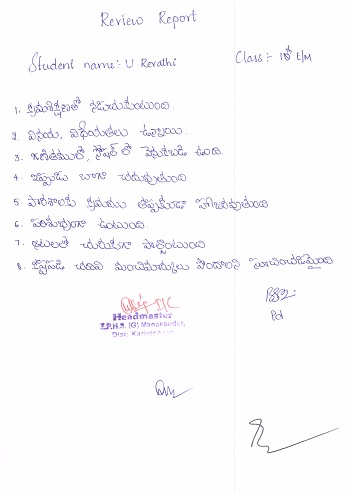 Review Report
Student name:- U. Revathi Class:- 10th E/M
1. క్రమశిక్షణతో నడుచుకుంటుంది.
2. వినయ, విధేయతలు ఉన్నాయి.
3. గణితములో, సోషల్ లో వెనుకబడి ఉంది.
4. ఇప్పుడు బాగా చదువుతుంది
5. పాఠశాలకు క్రమము తప్పకుండా హాజరవుతుంది
6. పరిశుభ్రంగా ఉంటుంది.
7. ఆటలలో చురుకుగా పాల్గొంటుంది
8. కష్టపడి చదివి మంచిమార్కులు పొందాలని సూచించడమైనది
I/C
Headmaster
Z.P.H.S. (G) Manakondur,
Dist. Karimnagar